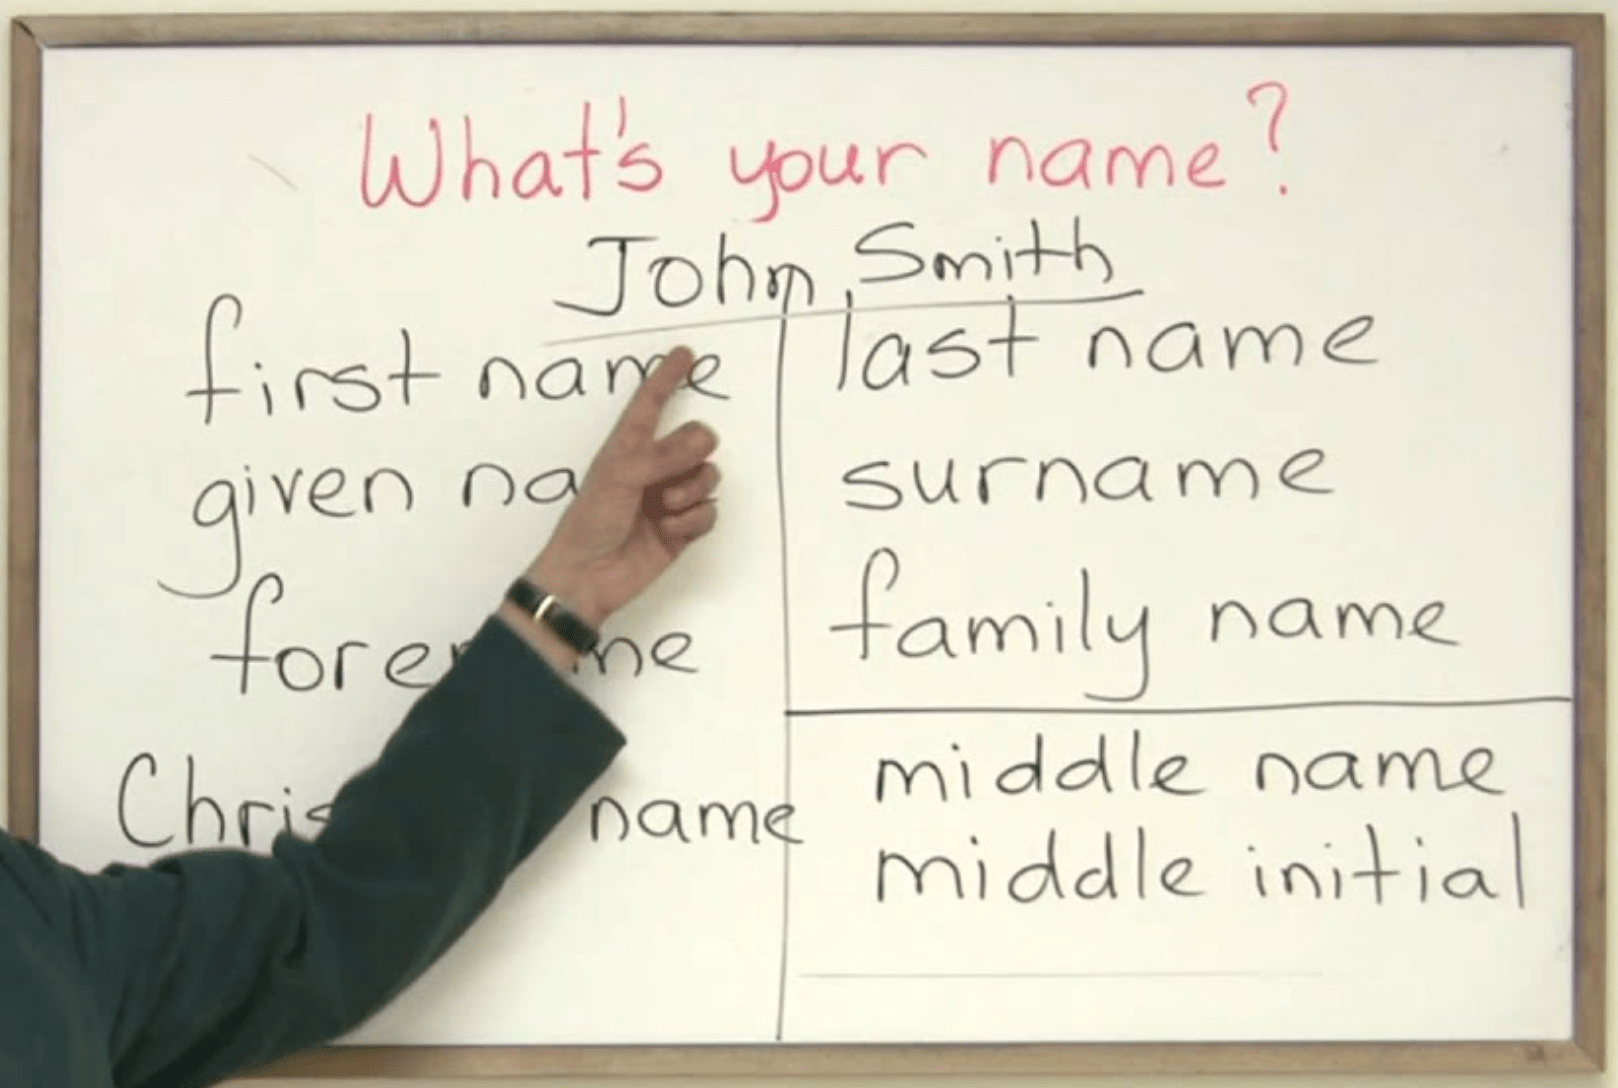 What's your name?
John Smith
first name
given
name
last name
surname
family name
middle name
middle initial